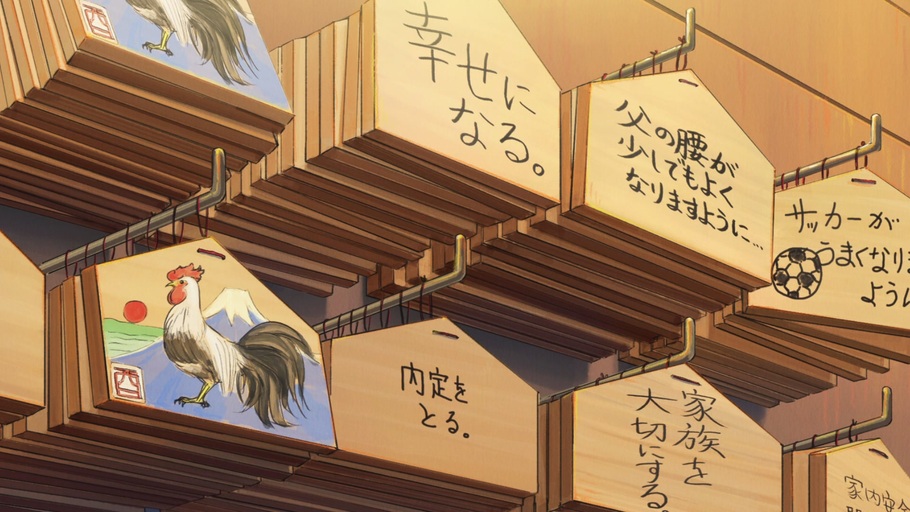 酉
幸せに
なる。
父の腰が
少しでもよく
なりますように…
サッカーが
うまくなりま
ように
酉
内定を
とる。
家族を
大切にする。
家内安全